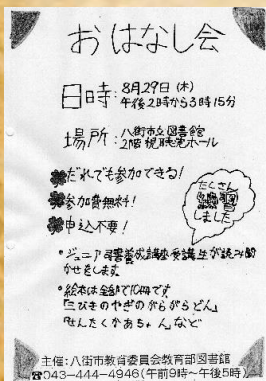 おはなし会
日時:8月29日(木)
午後2時から3時15分
場所:八街市立図書館
2階視聴覚ホール
だれでも参加できる!
参加費無料!
申込不要!
たくさん
しました
・ジュニア司書養成講座受講生が読み聞
かせをします
・絵本は全部で10冊です
『三びきのやぎのがらがらどん』
『せんたくかあちゃん』など
主催:八街市教育委員会教育部図書館
☎043-444-4946(午前9時~午後5時)